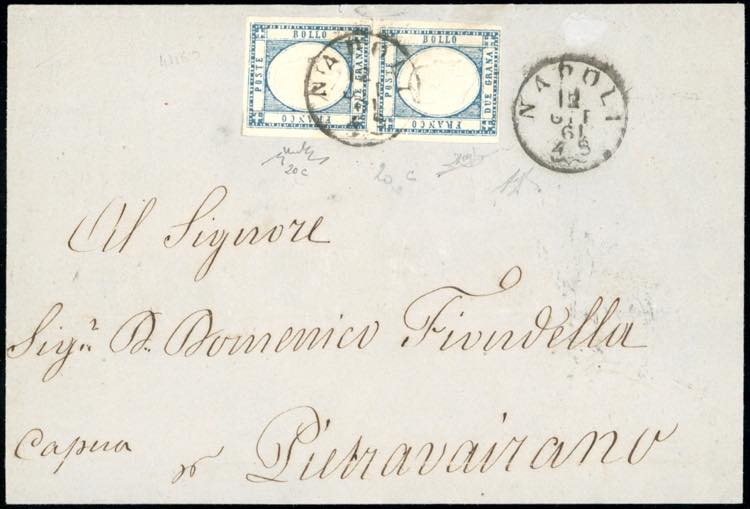 BOLLO
POSTE
DUE GRANA
FRANCO
BOLLO
POSTE
DUE GRANA
FRANCO
NAPOLI
NAPOLI
12
OTT
61
4 S
20 c
20 c
Al Signore
Sigr. D. Domenico Fiondella
Capua
Pietravairano